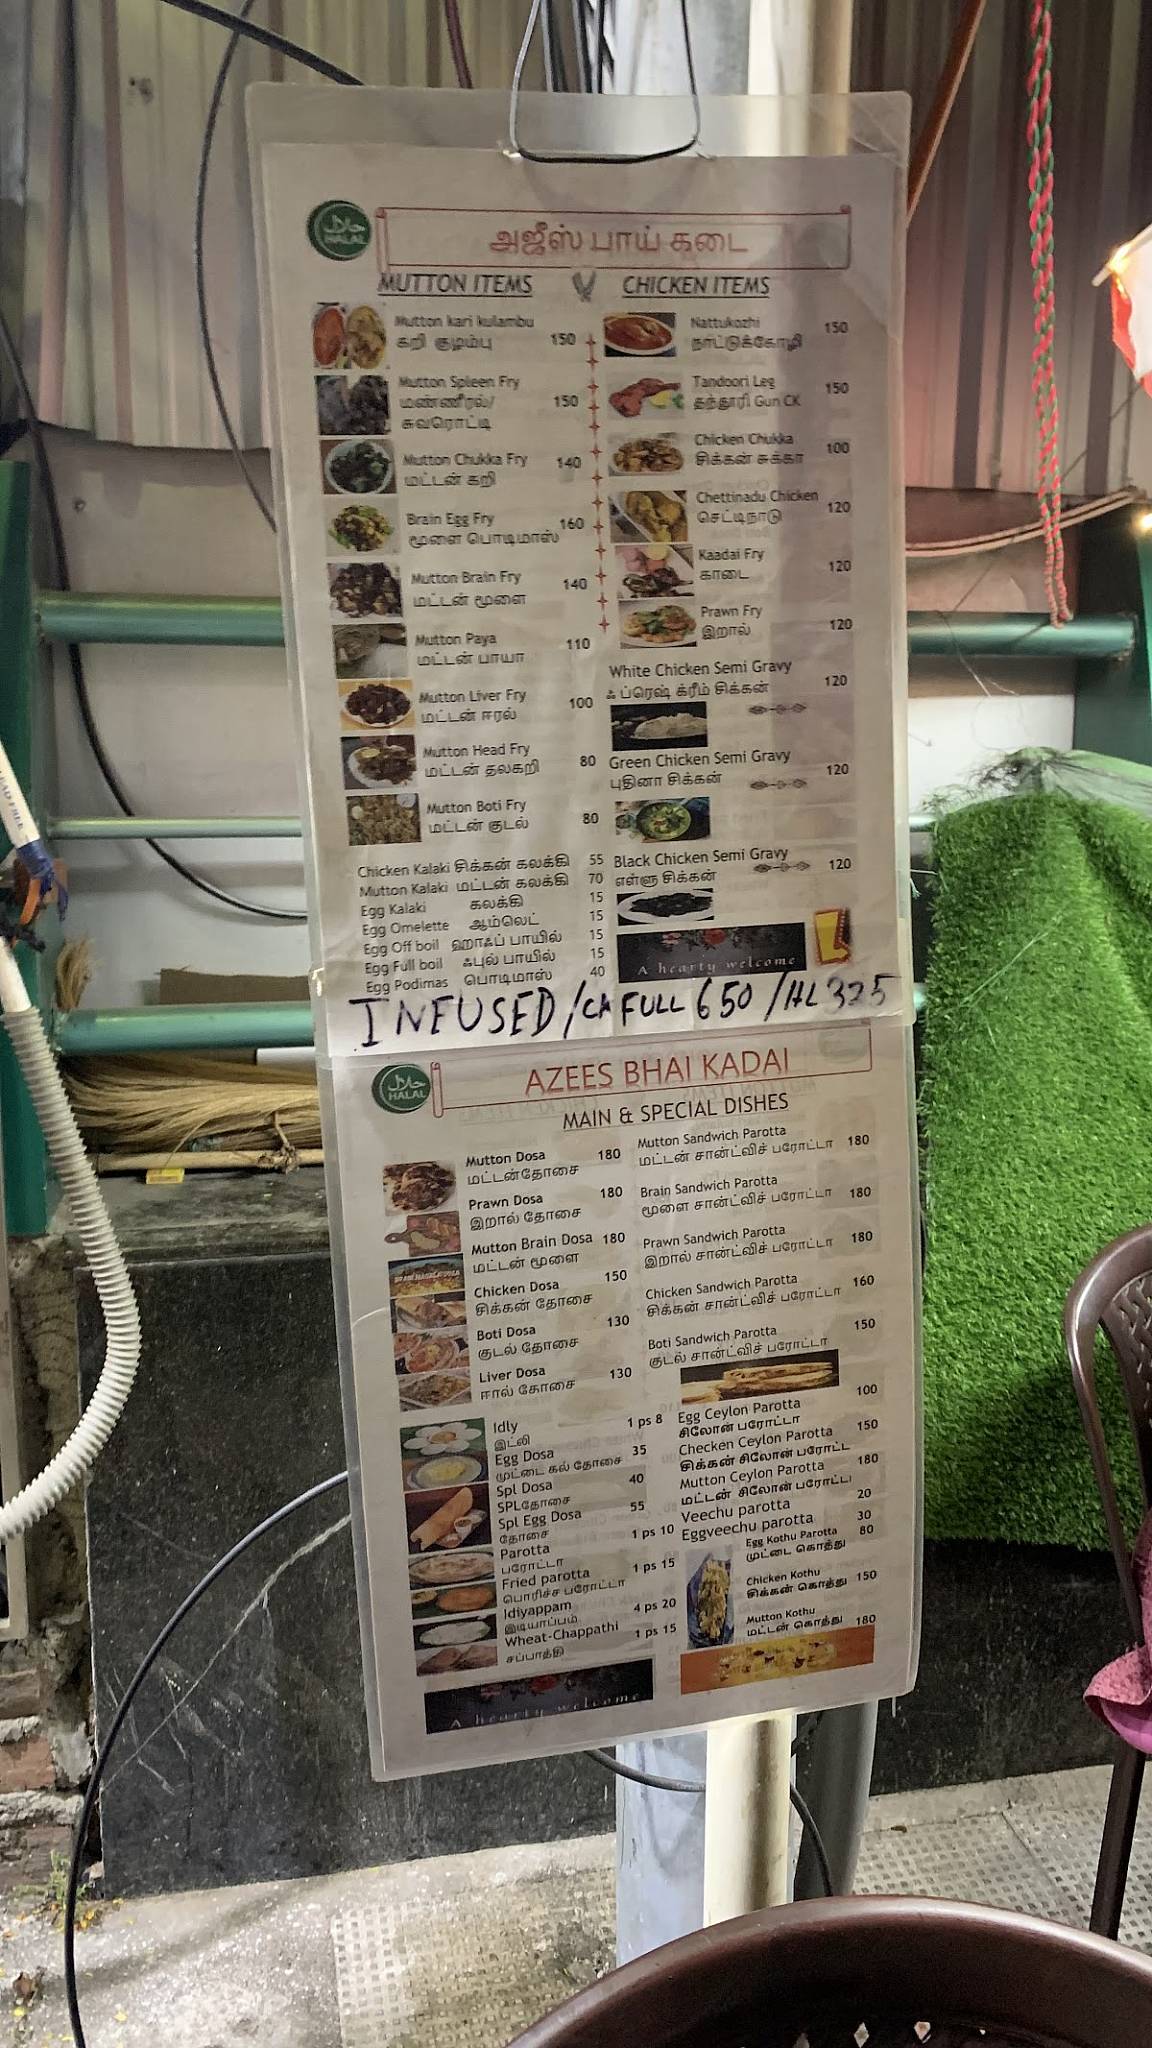 حلال
HALAL
அஜீஸ் பாய் கடை
MUTTON ITEMS
Mutton kari kulambu
கறி குழம்பு 150
Mutton Spleen Fry
மண்ணீரல்/ 150
சுவரொட்டி
Mutton Chukka Fry 140
மட்டன் கறி
Brain Egg Fry 160
மூளை பொடிமாஸ்
Mutton Brain Fry 140
மட்டன் மூளை
Mutton Paya 110
மட்டன் பாயா
Mutton Liver Fry 100
மட்டன் ஈரல்
Mutton Head Fry 80
மட்டன் தலகறி
Mutton Boti Fry 80
மட்டன் குடல்
Chicken Kalaki சிக்கன் கலக்கி 55
Mutton Kalaki மட்டன் கலக்கி 70
Egg Kalaki கலக்கி 15
Egg Omelette ஆம்லெட் 15
Egg Off boil ஹாஃப் பாயில் 15
Egg Full boil ஃபுல் பாயில் 15
Egg Podimas பொடிமாஸ் 40
CHICKEN ITEMS
Nattukozhi 150
நாட்டுக்கோழி
Tandoori Leg 150
தந்தூரி Gun CK
Chicken Chukka 100
சிக்கன் சுக்கா
Chettinadu Chicken 120
செட்டிநாடு
Kaadai Fry 120
காடை
Prawn Fry 120
இறால்
White Chicken Semi Gravy 120
ஃப்ரெஷ் க்ரீம் சிக்கன்
Green Chicken Semi Gravy 120
புதினா சிக்கன்
Black Chicken Semi Gravy 120
எள்ளு சிக்கன்
A hearty welcome
INFUSED/CK FULL 650/HL 325
حلال
HALAL
AZEES BHAI KADAI
MAIN & SPECIAL DISHES
Mutton Dosa 180
மட்டன்தோசை
Prawn Dosa 180
இறால் தோசை
Mutton Brain Dosa 180
மட்டன் மூளை
Chicken Dosa 150
சிக்கன் தோசை
Boti Dosa 130
குடல் தோசை
Liver Dosa 130
ஈரல் தோசை
Idly 1 ps 8
இட்லி
Egg Dosa 35
முட்டை கல் தோசை
Spl Dosa 40
SPLதோசை
Spl Egg Dosa 55
தோசை
Parotta 1 ps 10
பரோட்டா
Fried parotta 1 ps 15
பொரிச்ச பரோட்டா
Idiyappam 4 ps 20
இடியாப்பம்
Wheat-Chappathi 1 ps 15
சப்பாத்தி
A hearty welcome
Mutton Sandwich Parotta 180
மட்டன் சான்ட்விச் பரோட்டா
Brain Sandwich Parotta 180
மூளை சான்ட்விச் பரோட்டா
Prawn Sandwich Parotta 180
இறால் சான்ட்விச் பரோட்டா
Chicken Sandwich Parotta 160
சிக்கன் சான்ட்விச் பரோட்டா
Boti Sandwich Parotta 150
குடல் சான்ட்விச் பரோட்டா
Egg Ceylon Parotta 100
சிலோன் பரோட்டா
Checken Ceylon Parotta 150
சிக்கன் சிலோன் பரோட்ட
Mutton Ceylon Parotta 180
மட்டன் சிலோன் பரோட்டா
Veechu parotta 20
Eggveechu parotta 30
Egg Kothu Parotta 80
முட்டை கொத்து
Chicken Kothu 150
சிக்கன் கொத்து
Mutton Kothu 180
மட்டன் கொத்து